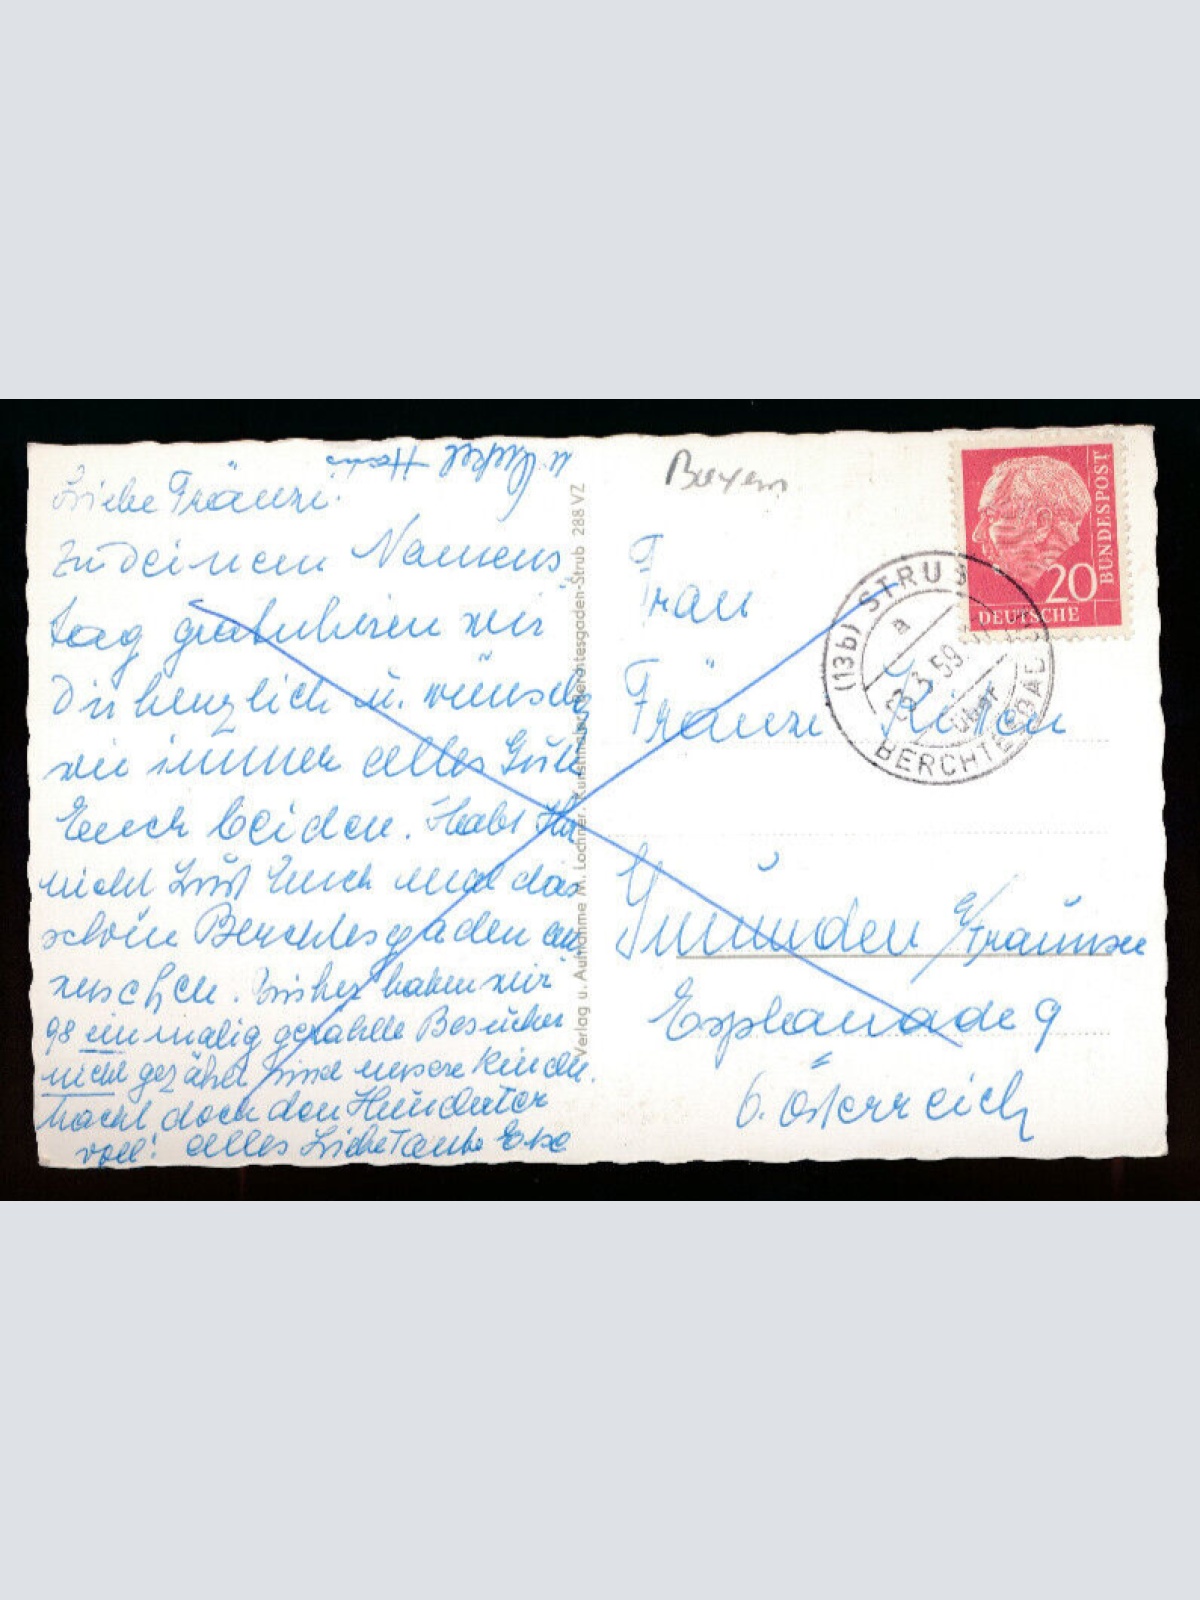 Liebe Fränzi!
zu deinem Namens
tag gratulieren wir
Dir herzlich u. wünsch
wie immer alles Gute
Euch beiden. Habt Ihr
nicht Lust Euch mal das
schöne Berchtesgaden an
zusehen. Bisher haben wir
98 einmalig gezählte Besucher
nicht gezählt sind unsere Kinder.
Macht doch den Hunderter
voll! Alles Liebe Tante Else
u. Onkel Hans
Verlag u. Aufnahme M. Lochner, Kunstmaler, Berchtesgaden-Strub 288 VZ
Bayern
20
BUNDESPOST
DEUTSCHE
(13b) STRUB
a
3.59
über
BERCHTESGADEN
Frau
Fränzi
Gmunden a/Traunsee
Esplanade 9
O. Österreich